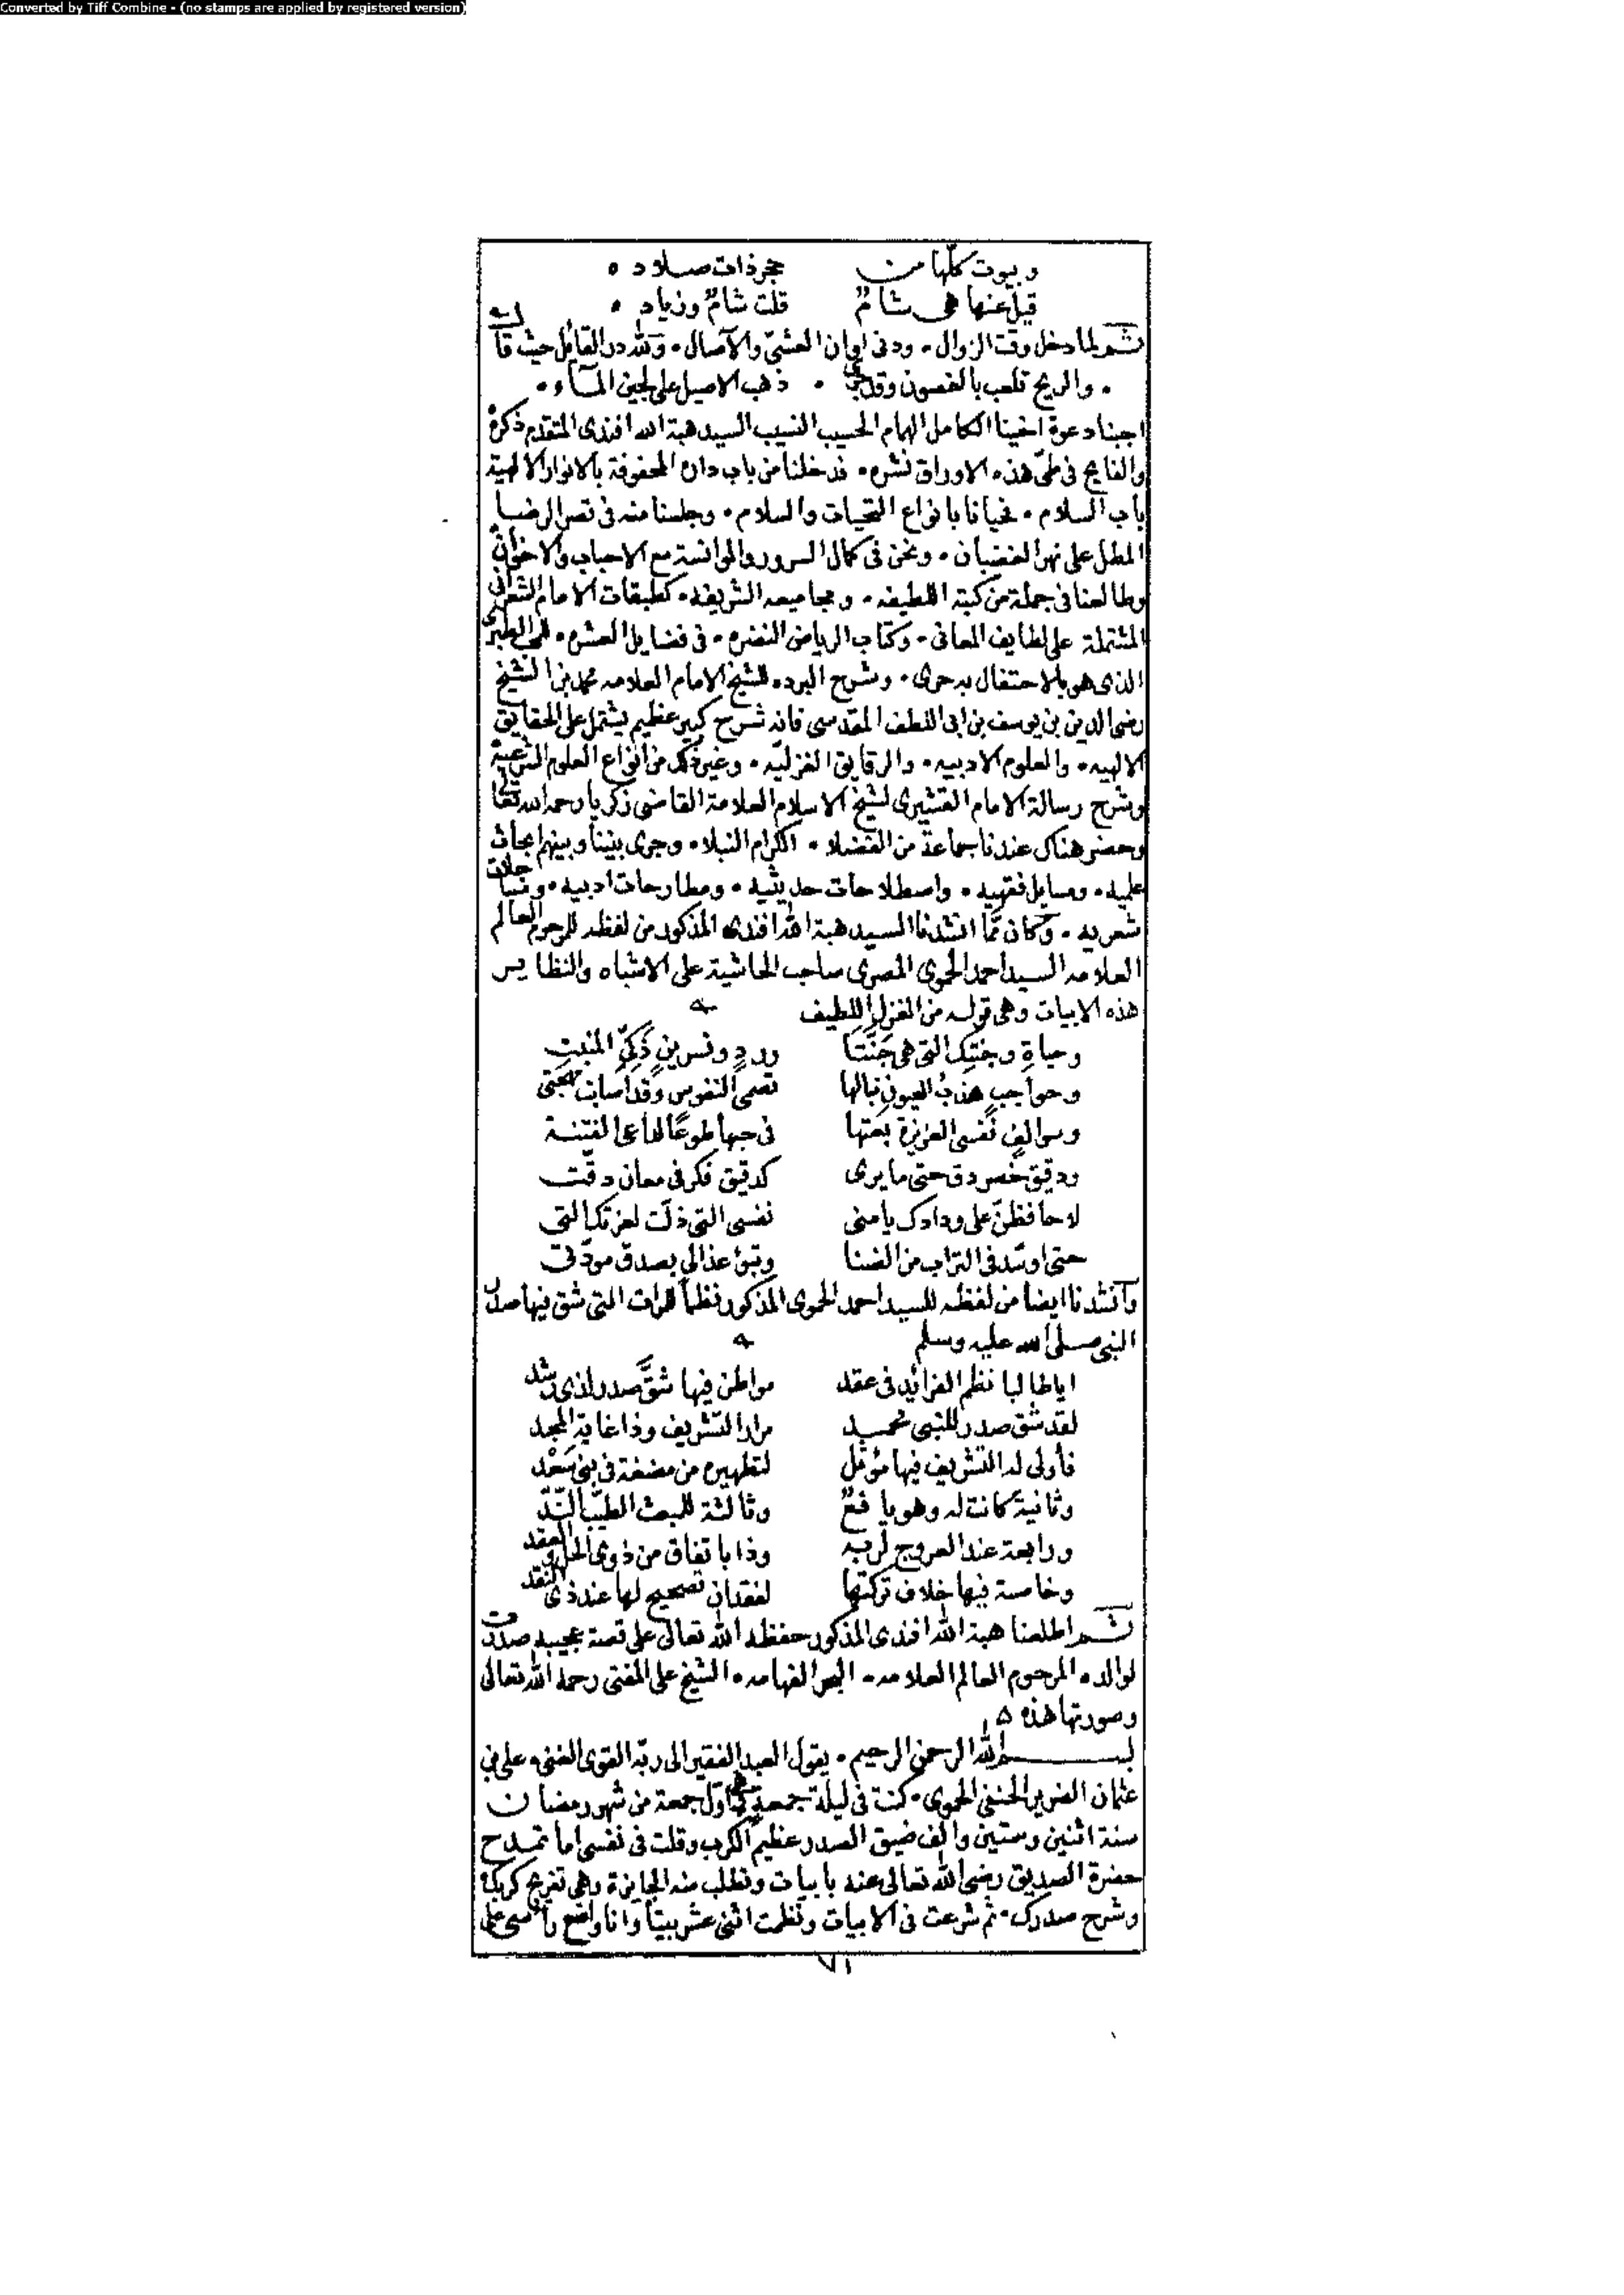 Converted by Tiff Combine - (no stamps are applied by registered version)
وبيوت كلها من حجر ذات صلاده
قيل عنها هى شامٌ قلت شامٌ وزياده
ثم لما دخل وقت الزوال. ودنى اوان العشيّ والآصال. ولله در القايل حيث قال
والريح تلعب بالغصون وقد جرى ذهب الاصيل على لجين المآء
اجبنا دعوة اخينا الكامل الهمام الحسيب النسيب السيد هبة الله افندى المتقدم ذكره
والفايح فى طى هذه الاوراق نشره. فدخلنا من باب داره المحفوفة بالانوار الالهية
باب السلام. فحيانا بانواع التحيات والسلام. وجلسنا منه فى قصر الرضا
المطل على نهر الغضبان. ونحن فى كمال السرور والموانسة مع الاحباب والاخوان
وطالعنا فى جملة من كتبه اللطيفه. ومجاميعه الشريفه. كطبقات الامام الشعرانى
المشتملة على لطايف المعانى. وكتاب الرياض النضره. فى فضايل العشره. للمحب الطبرى
الذى هو بالاحتفال به حرى. وشرح البرده للشيخ الامام العلامه محمد بن الشيخ
رضى الدين بن يوسف بن ابى اللطف المقدسى فانه شرح كبير عظيم يشتمل على الحقايق
الالهيه. والعلوم الادبيه. والرقايق الغزليّه. وغير ذلك من انواع العلوم الشرعية
وشرح رسالة الامام القشيرى لشيخ الاسلام العلامة القاضى زكريا رحمه الله تعالى
وحضر هناك عندنا جماعة من الفضلاء. الكرام النبلاء. وجرى بيننا وبينهم ابحاث
علميه. ومسايل فقهيه. واصطلاحات حديثيه. ومطارحات ادبيه. ومساجلات
شعريه. وكان مما انشدنا السيد هبة الله افندى المذكور من لفظه للمرحوم العالم
العلامه السيد احمد الحموى المصرى صاحب الحاشية على الاشباه والنظاير
هذه الابيات وهى قوله من الغزل اللطيف
وحياةِ وجنتك التى هى جَنَّتَا وردٍ ونسرينٍ ذَكِيِّ المنبتِ
وحواجبٍ هدب العيون نبالها تصمى النفوس وقد اسابت مهجتى
وسوالفٍ نفسى العزيزة بعتها فى حبها طوعًا لداعى الفتنة
ودقيق خصر دق حتى ما يرى كدقيق فكر فى معان دقّت
لاحافظنّ على ودادك يا منى نفسى التى ذلت لعزتك التى
حتى اوسّد فى التراب من الضنا وتبؤ عذالى بصدق مودّتى
وانشدنا ايضا من لفظه للسيد احمد الحموى المذكور نظماً للمرات التى شق فيها صدر
النبى صلى الله عليه وسلم
ايا طالبا نظم الفرائد فى عقد مواطن فيها شقّ صدر لذى رشد
لقد شق صدر للنبى محمد مرارا لتشريف وذا غاية المجد
فأولى له التشريف فيها مؤثل لتطهيره من مضغة فى بنى سَعْد
وثانية كانت له وهو يافعٌ وثالثة للمبعث الطيّب النّدّ
ورابعة عند العروج لربه وذا باتفاق من ذوى الحل والعقد
وخامسة فيها خلاف تركتها لفقدان تصحيح لها عند ذى النقد
ثم اطلعنا هبة الله افندى المذكور حفظه الله تعالى على قصة عجيبه صدرت
لوالده المرحوم العالم العلامه. البحر الفهامه. الشيخ على المفتى رحمه الله تعالى
وصورتها هذه
بسم الله الرحمن الرحيم. يقول العبد الفقير الى ربّه القوى الغنى. على بن
عثمان الضرير الحنفى الحموى. كنت فى ليلة جمعة هى اول جمعة من شهر رمضان
سنة اثنين وستين والف ضيق الصدر عظيم الكرب وقلت فى نفسى اما تمدح
حضرة الصديق رضى الله تعالى عنه بابيات وتطلب منه الجايزة وهى تفريج كربك
وشرح صدرك. ثم شرعت فى الابيات ونظمت اثنى عشر بيتاً وانا واضع رأسى على
٧١